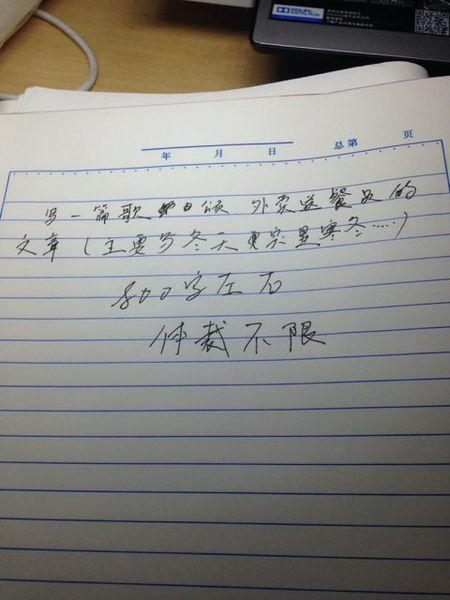 DOLBY
年 月 日 总第 页
写一篇歌颂外卖送餐员的
文章(主要写冬天寒冬……)
800字左右
体裁不限